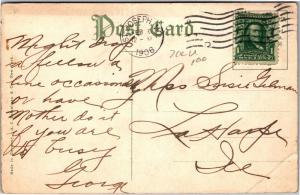 Post Card
ST. JOSEPH
1908
Might drop
a fellow a
line occasionally
or have
Mother do it
if you are
to busy
George
Miss Susie Gilman
La Harpe
Ill
100